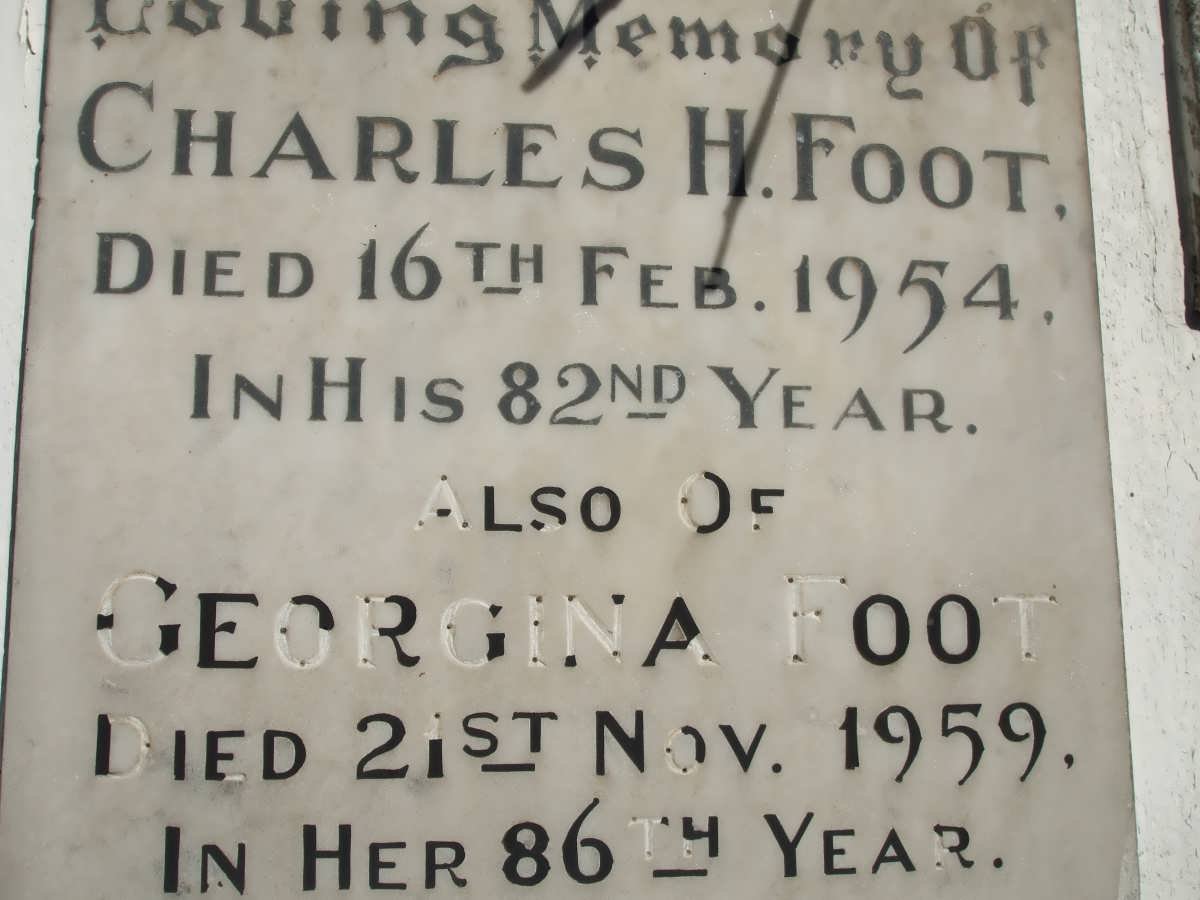 Loving Memory Of
CHARLES H. FOOT,
DIED 16TH FEB. 1954,
IN HIS 82ND YEAR.
ALSO OF
GEORGINA FOOT
DIED 21ST NOV. 1959,
IN HER 86TH YEAR.